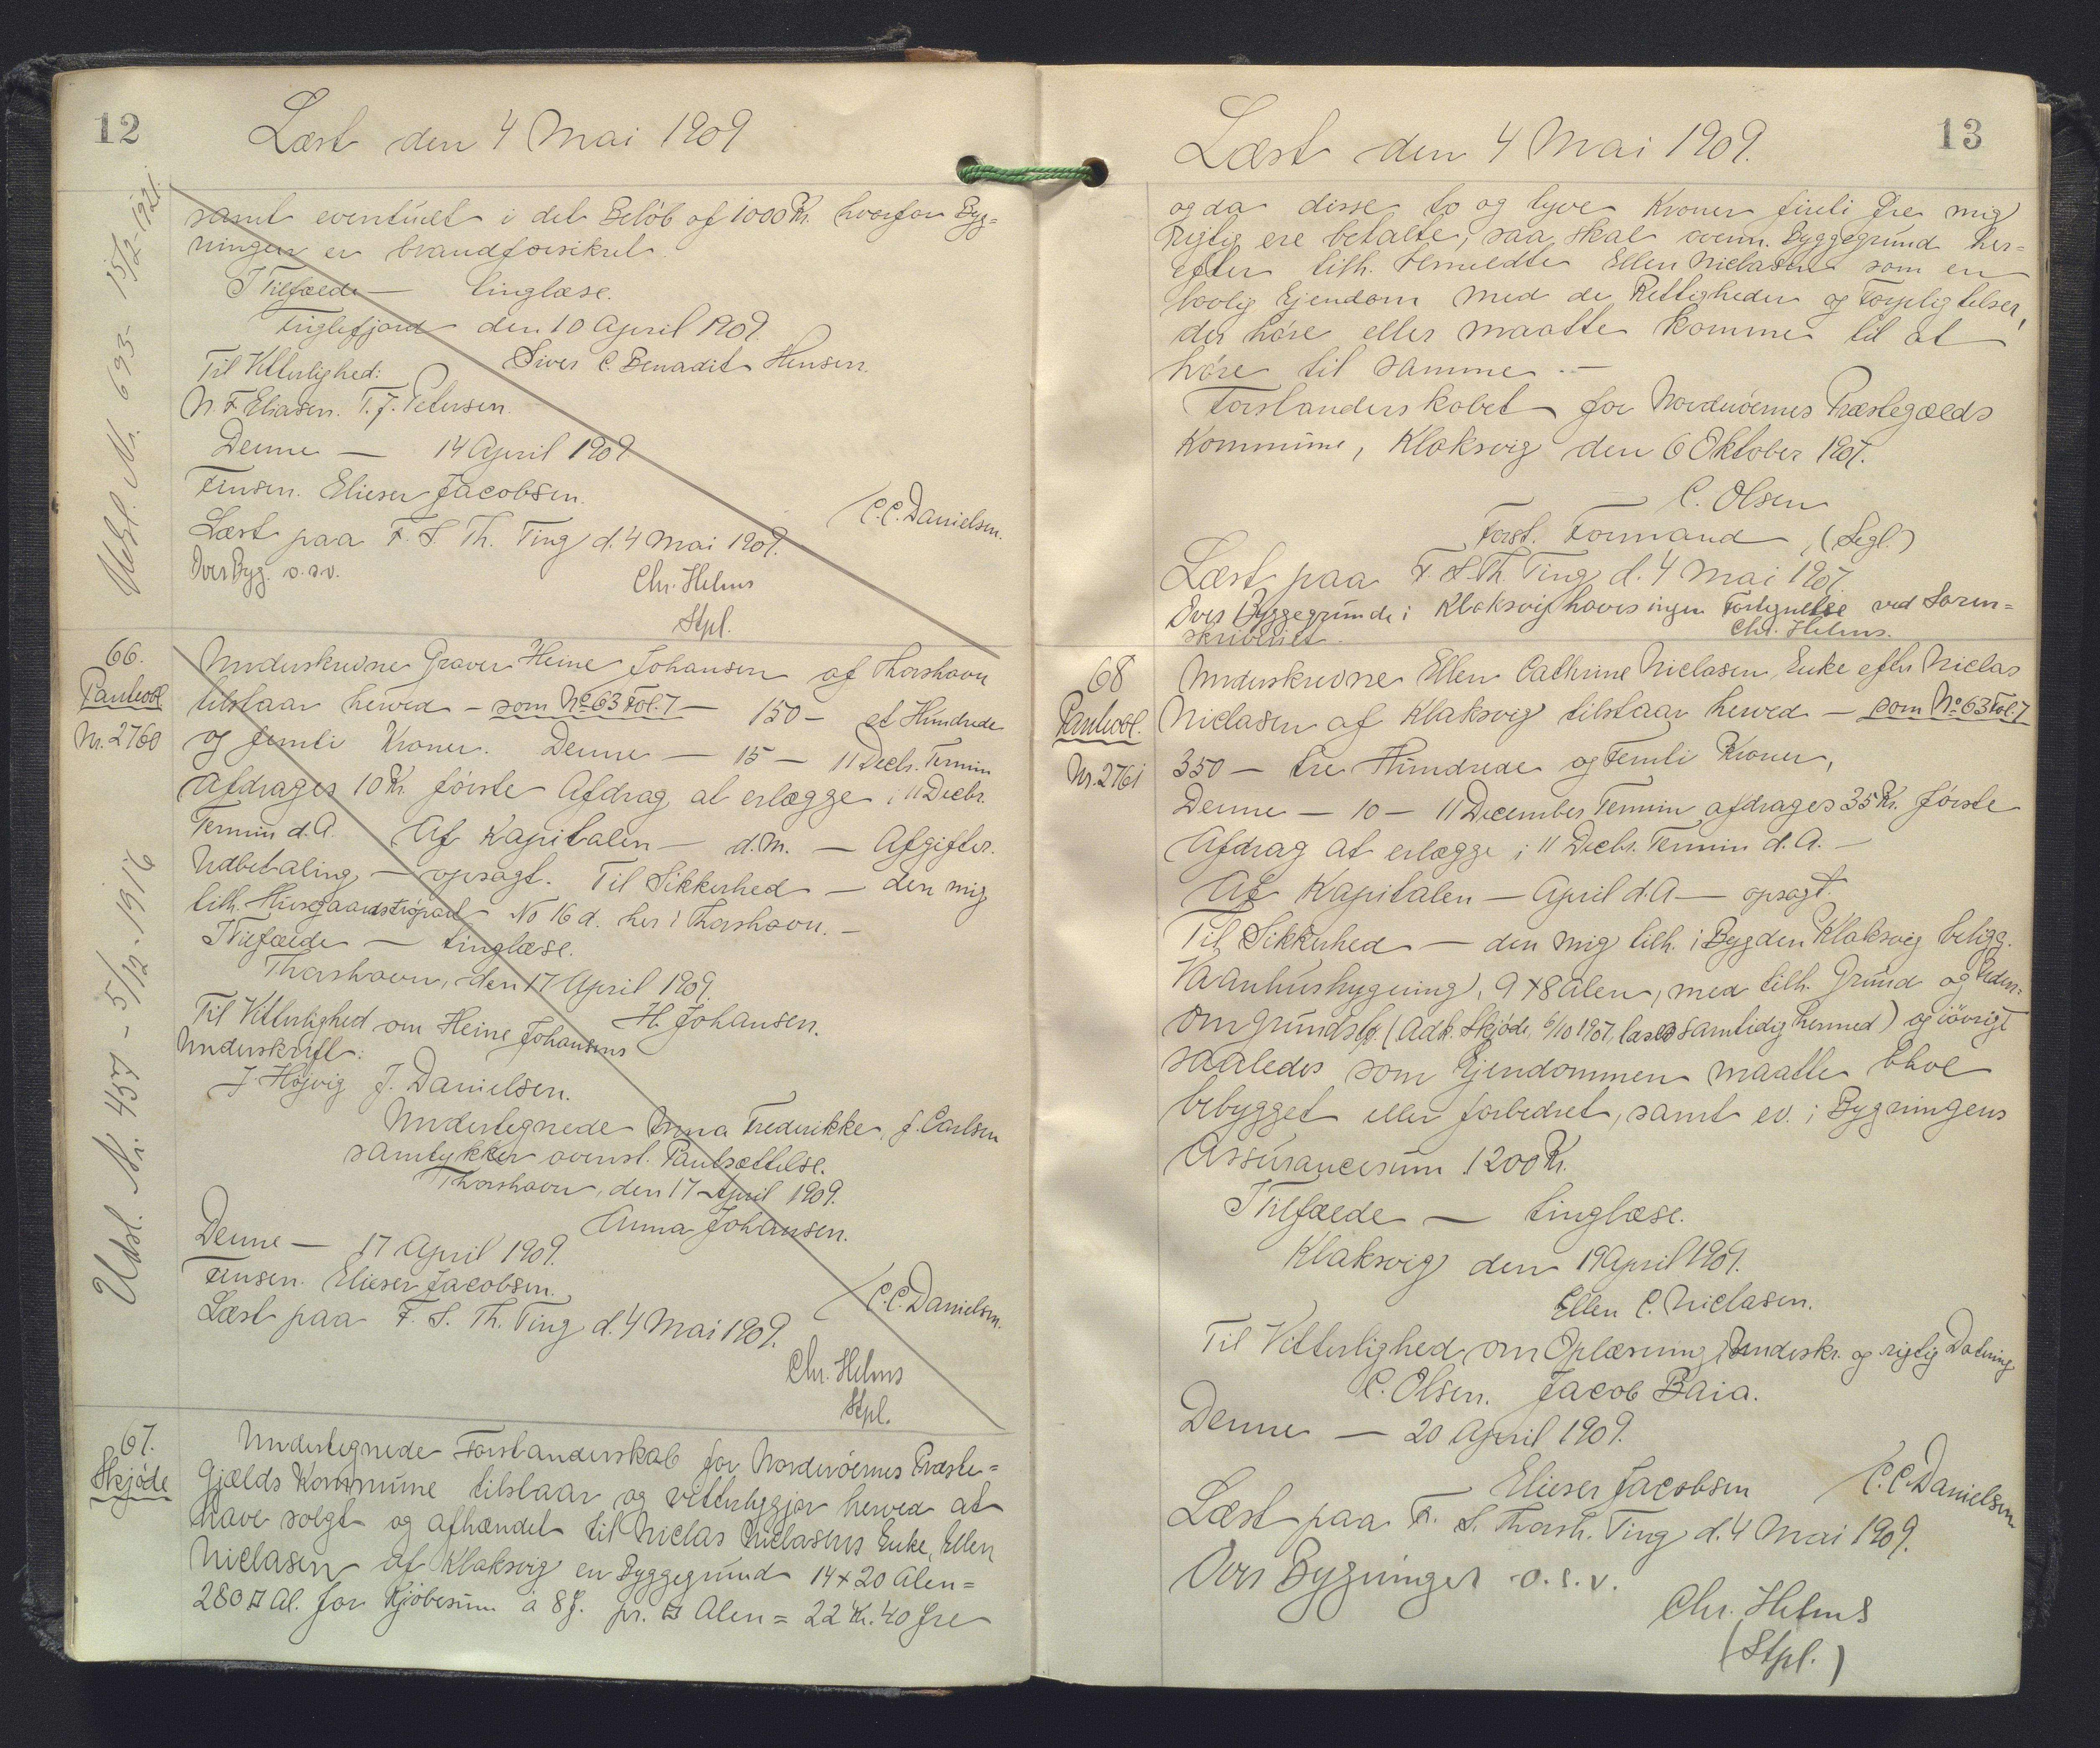 12
Læst den 4 Mai 1909
15/2-1921.
Udsl. Nr. 693-
samt eventuelt i det Beløb af 1000 Kr. hvorfor Byg=
ningen er brandforsikret.
I Tilfælde — tinglæse.
Fuglefjord den 10 April 1909.
Til Vitterlighed: Siver C. Benadit Hensen.
N. F. Eliasen. T. J. Petersen.
Denne — 14 April 1909
Jensen. Elieser Jacobsen.
/C.C. Danielsen.
Læst paa F. S. Th. Ting d. 4 Mai 1909.
Over Byg. o.s.v.
Chr. Helms
Stpl.
66.
Panteobl.
Nr. 2760
Udsl. Nr. 457 - 5/12-1916
Underskrevne Graver Heine Johansen af Thorshavn
tilstaar herved — som No 63 Fol. 7 — 150 — et Hundrede
og femti Kroner. Denne — 15 — 11 Decb. Termin
Afdrages 10 Kr. første Afdrag at erlægge i 11 Decbr.
Termin d.A. Af Kapitalen — d.M. — Afgifter.
Udbetaling — opsagt. Til Sikkerhed — den mig
tilh. Husgaardstrøpart No 16 d. her i Thorshavn. —
I Tilfælde — tinglæse.
Thorshavn, den 17 April 1909.
Til Vitterlighed om Heine Johansens H. Johansen.
Underskrift:
J. Højvig J. Danielsen.
Undertegnede Anna Frederikke, f. Carlsen
samtykker ovenst. Pantsættelse.
Thorshavn, den 17 April 1909.
Anna Johansen.
Denne — 17 April 1909.
Jensen. Elieser Jacobsen.
/C.C. Danielsen.
Læst paa F. S. Th. Ting d. 4 Mai 1909.
Chr. Helms
Stpl.
67.
Skjøde
Undertegnede Forstanderskab for Norderøernes Præste=
Gjælds Kommune tilstaar og vitterliggjør herved at
have solgt og afhændet til Niclas Niclasens Enke, Ellen
Niclasen af Klaksvig en Byggegrund 14 x 20 Alen =
280 □ Al. for Kjøbesum a 8 Ø. pr. □ Alen = 22 Kr. 40 Øre
13
Læst den 4 Mai 1909.
og da disse to og tyve Kroner firti Øre mig
rigtig ere betalte, saa skal ovenn. Byggegrund her=
efter tilh. bemeldte Ellen Niclasen som en
lovlig Ejendom med de Rettigheder og Forpligtelser,
der høre eller maatte komme til at
høre til samme. —
Forstanderskabet for Norderøernes Præstegælds
Kommune, Klaksvig den 6 Oktober 1907.
C. Olsen
Forst. Formand, (Segl.)
Læst paa F. S. Th. Ting d. 4 Mai 1909.
Over Byggegrunde i Klaksvig haves ingen Fortegnelse ved Soren=
skriveriet.
Chr. Helms.
68
Panteobl.
Nr. 2761
Underskrevne Ellen Cathrine Niclasen, Enke efter Niclas
Niclasen af Klaksvig tilstaar herved — som No 63 Fol. 7
350 — tre Hundrede og Femti Kroner,
Denne — 10 — 11 December Termin afdrages 35 Kr. første
Afdrag at erlægge i 11 Decbr. Termin d.A. —
Af Kapitalen — April d.A — opsagt.
Til Sikkerhed — den mig tilh. i Bygden Klaksvig beligg.
Vaanhusbygning, 9 x 8 Alen, med tilh. Grund og
omgrundstk. (Adk. Skjøde, 6/10 1907, læses samtidig hermed) og iøvrigt
saaledes som Ejendommen maatte blive
bebygget eller forbedret, samt ev. i Bygningens
Assurancesum 1200 Kr.
I Tilfælde — tinglæse.
Klaksvig den 19 April 1909.
Ellen C. Niclasen.
Til Vitterlighed om Oplæsning, Underskr. og rigtig Datering
C. Olsen. Jacob Baia.
Denne — 20 April 1909.
Elieser Jacobsen /C.C. Danielsen
Læst paa F. S. Thorsh. Ting d. 4 Mai 1909.
Over Bygninger o.s.v.
Chr. Helms
(Stpl.)